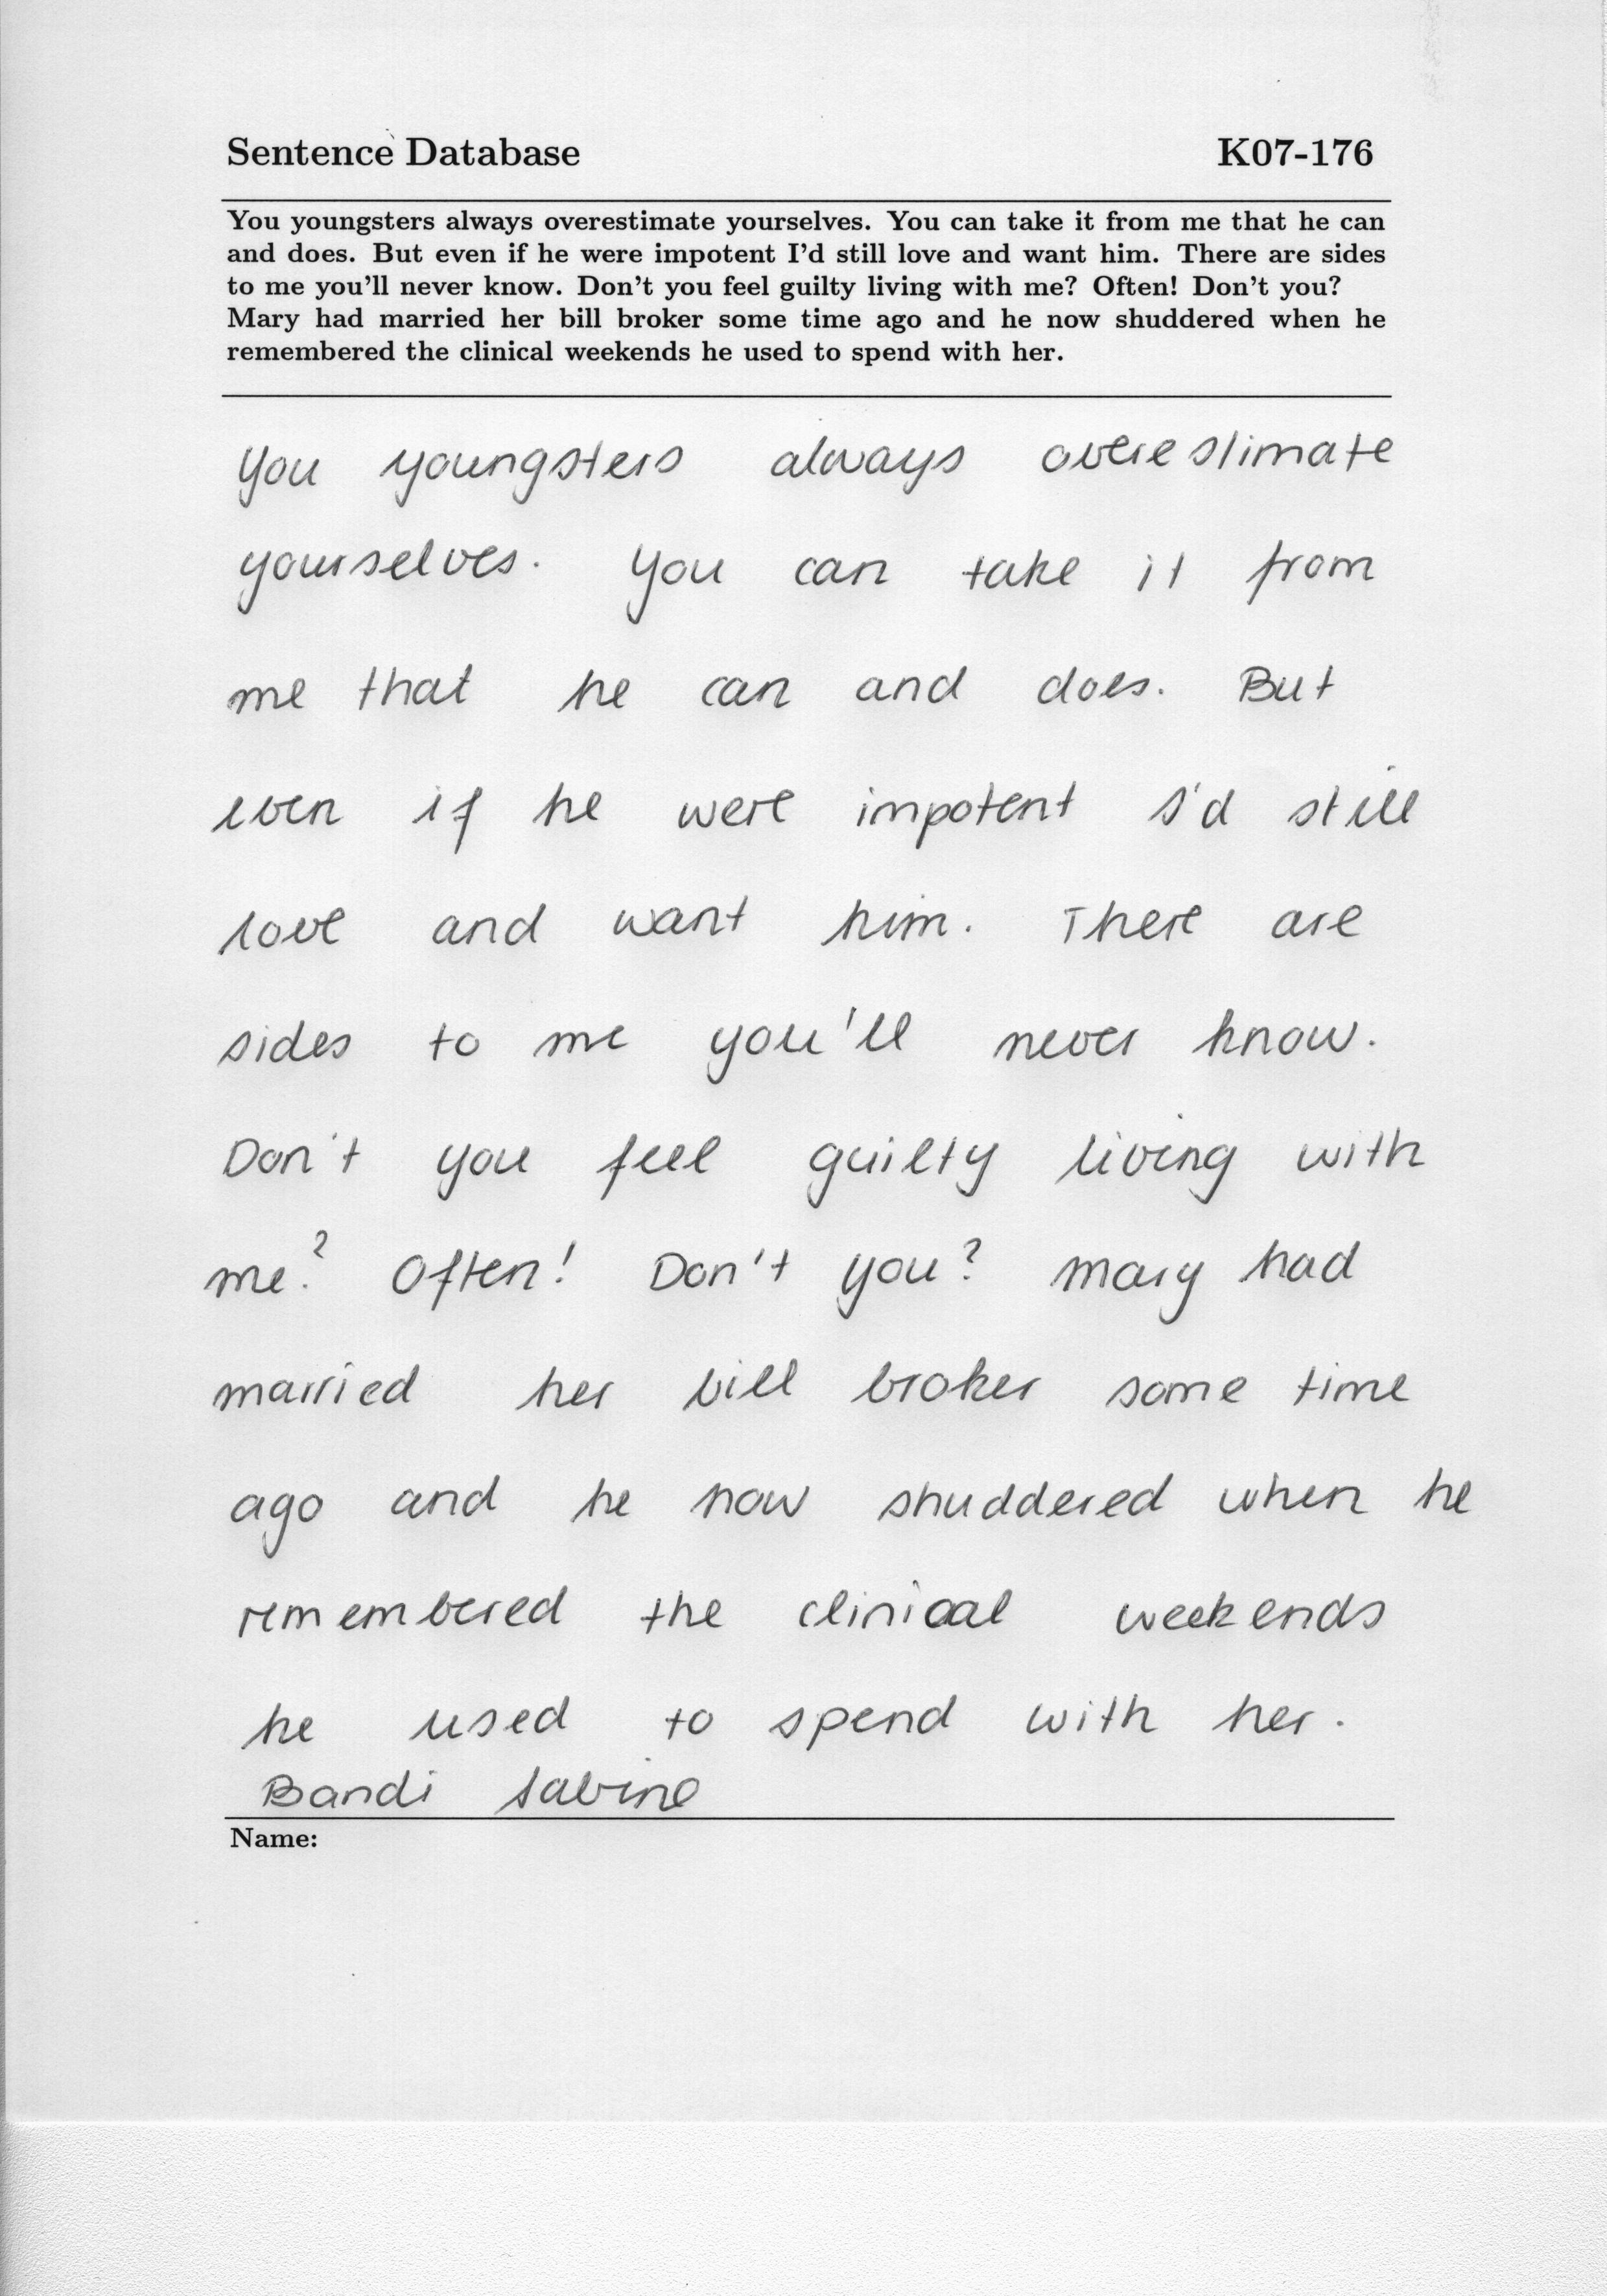 Sentence Database K07-176
You youngsters always overestimate yourselves. You can take it from me that he can
and does. But even if he were impotent I'd still love and want him. There are sides
to me you'll never know. Don't you feel guilty living with me? Often! Don't you?
Mary had married her bill broker some time ago and he now shuddered when he
remembered the clinical weekends he used to spend with her.
You youngsters always overestimate
yourselves. You can take it from
me that he can and does. But
even if he were impotent I'd still
love and want him. There are
sides to me you'll never know.
Don't you feel guilty living with
me? Often! Don't you? Mary had
married her bill broker some time
ago and he now shuddered when he
remembered the clinical weekends
he used to spend with her.
Bandi Sabine
Name: